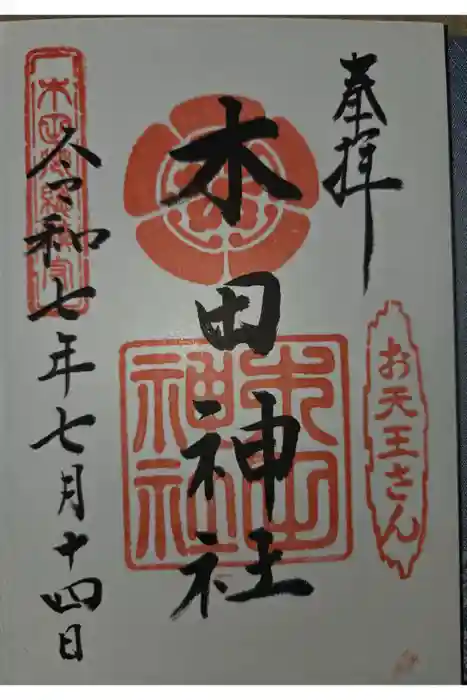 奉拝
お天王さん
木田神社
木田神社
令和七年七月十四日